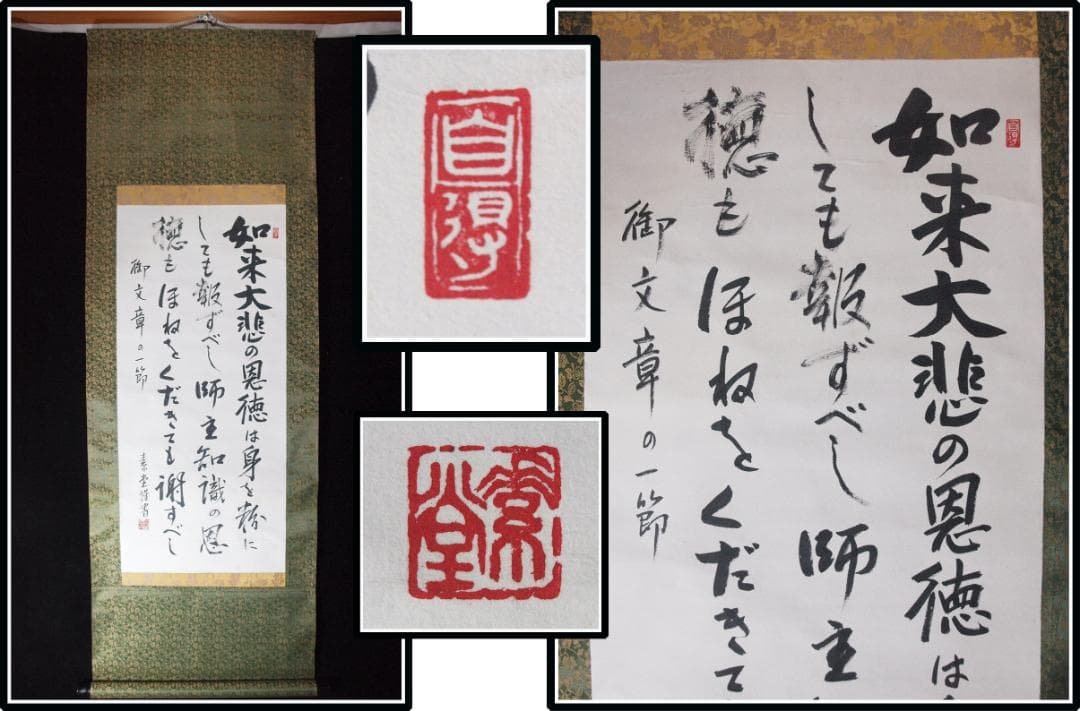 如来大悲の恩徳は身を粉に
しても報ずべし師主知識の恩
徳もほねをくだきても謝すべし
御文章の一節
素堂
自得
素堂
如来大悲の恩徳は
しても報ずべし師主
徳もほねをくだきて
御文章の一節
自得